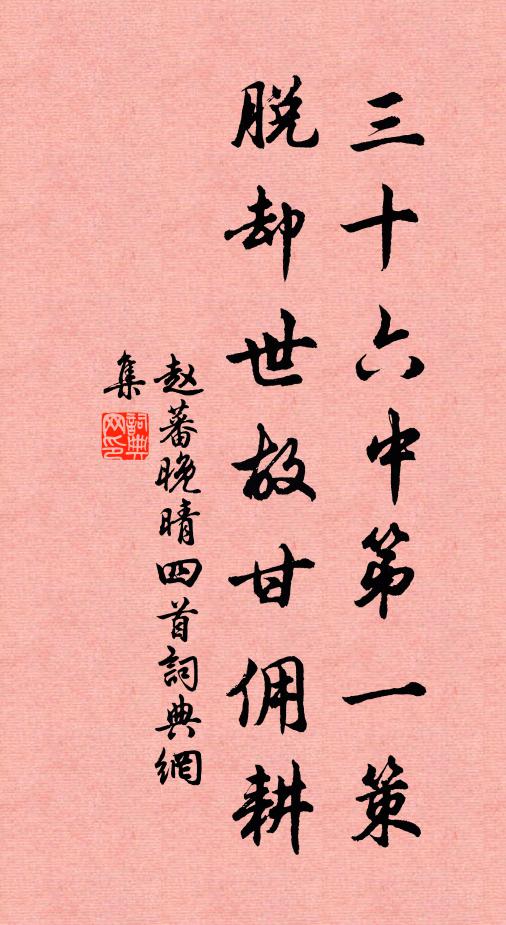 三十六中第一策
脱却世故甘佣耕
赵蕃晚晴四首詞典網
集
詞典網印